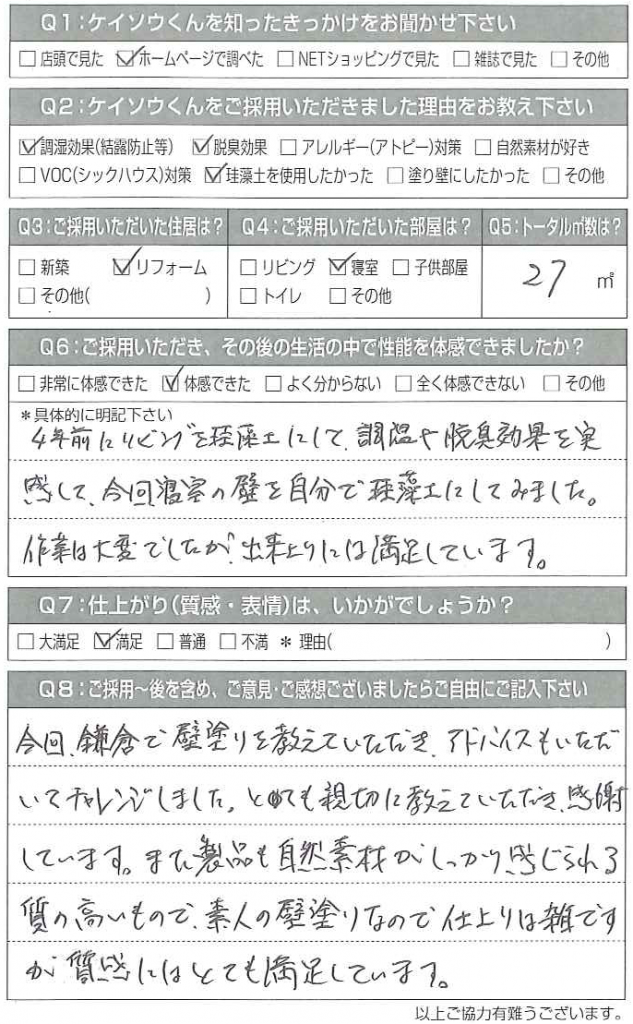 Q1:ケイソウくんを知ったきっかけをお聞かせ下さい
□店頭で見た ☑ホームページで調べた □NETショッピングで見た □雑誌で見た □その他
Q2:ケイソウくんをご採用いただきました理由をお教え下さい
☑調湿効果(結露防止等) ☑脱臭効果 □アレルギー(アトピー)対策 □自然素材が好き
□VOC(シックハウス)対策 ☑珪藻土を使用したかった □塗り壁にしたかった □その他
Q3:ご採用いただいた住居は? Q4:ご採用いただいた部屋は? Q5:トータル㎡数は?
□新築 ☑リフォーム □リビング ☑寝室 □子供部屋 27 ㎡
□その他( ) □トイレ □その他
Q6:ご採用いただき、その後の生活の中で性能を体感できましたか?
□非常に体感できた ☑体感できた □よく分からない □全く体感できない □その他
*具体的に明記下さい
4年前にリビングを珪藻土にして、調湿や脱臭効果を実
感して、今回寝室の壁を自分で珪藻土にしてみました。
作業は大変でしたが、出来上りには満足しています。
Q7:仕上がり(質感・表情)は、いかがでしょうか?
□大満足 ☑満足 □普通 □不満 *理由( )
Q8:ご採用〜後を含め、ご意見・ご感想ございましたらご自由にご記入下さい
今回、鎌倉で壁塗りを教えていただき、アドバイスもいただ
いてチャレンジしました。とても親切に教えていただき、感謝
しています。また製品も自然素材がしっかり感じられる
質の高いもので、素人の壁塗りなので仕上りは雑です
が質感にはとても満足しています。
以上ご協力有難うございます。